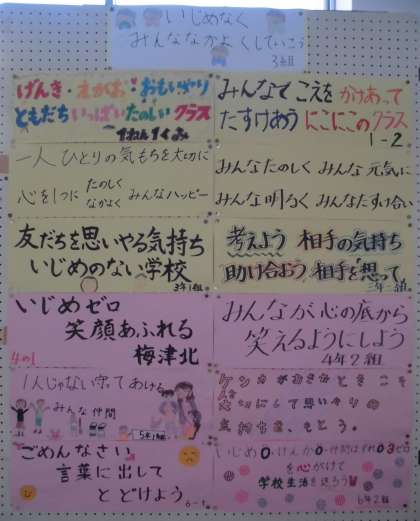 いじめなく
みんななかよくしていこう
げんき・えがお・おもいやり
ともだちいっぱいたのしいクラス
1ねん1くみ
みんなで こえを かけあって
たすけあう にこにこのクラス
1-2
一人ひとりの気もちを大切に
心を1つに たのしく なかよく みんなハッピー
みんなたのしく みんな元気に
みんな明るく みんなたすけ合い
友だちを思いやる気持ち
いじめのない学校
3年1組
考えよう 相手の気持ち
助け合おう 相手を想って
いじめゼロ
笑顔あふれる
梅津北
4の1
みんなが心の底から
笑えるようにしよう
4年2組
1人じゃない守ってあげる
みんな仲間
5年1組
ケンカがおきたときこそ
大切にして思いやりの
気持ちを、もとう。
ごめんなさい
言葉に出して
とどけよう
6-1
いじめ0・けんか0・仲間はずれ0 3ゼロ
を心がけて
学校生活を送ろう
6年2組